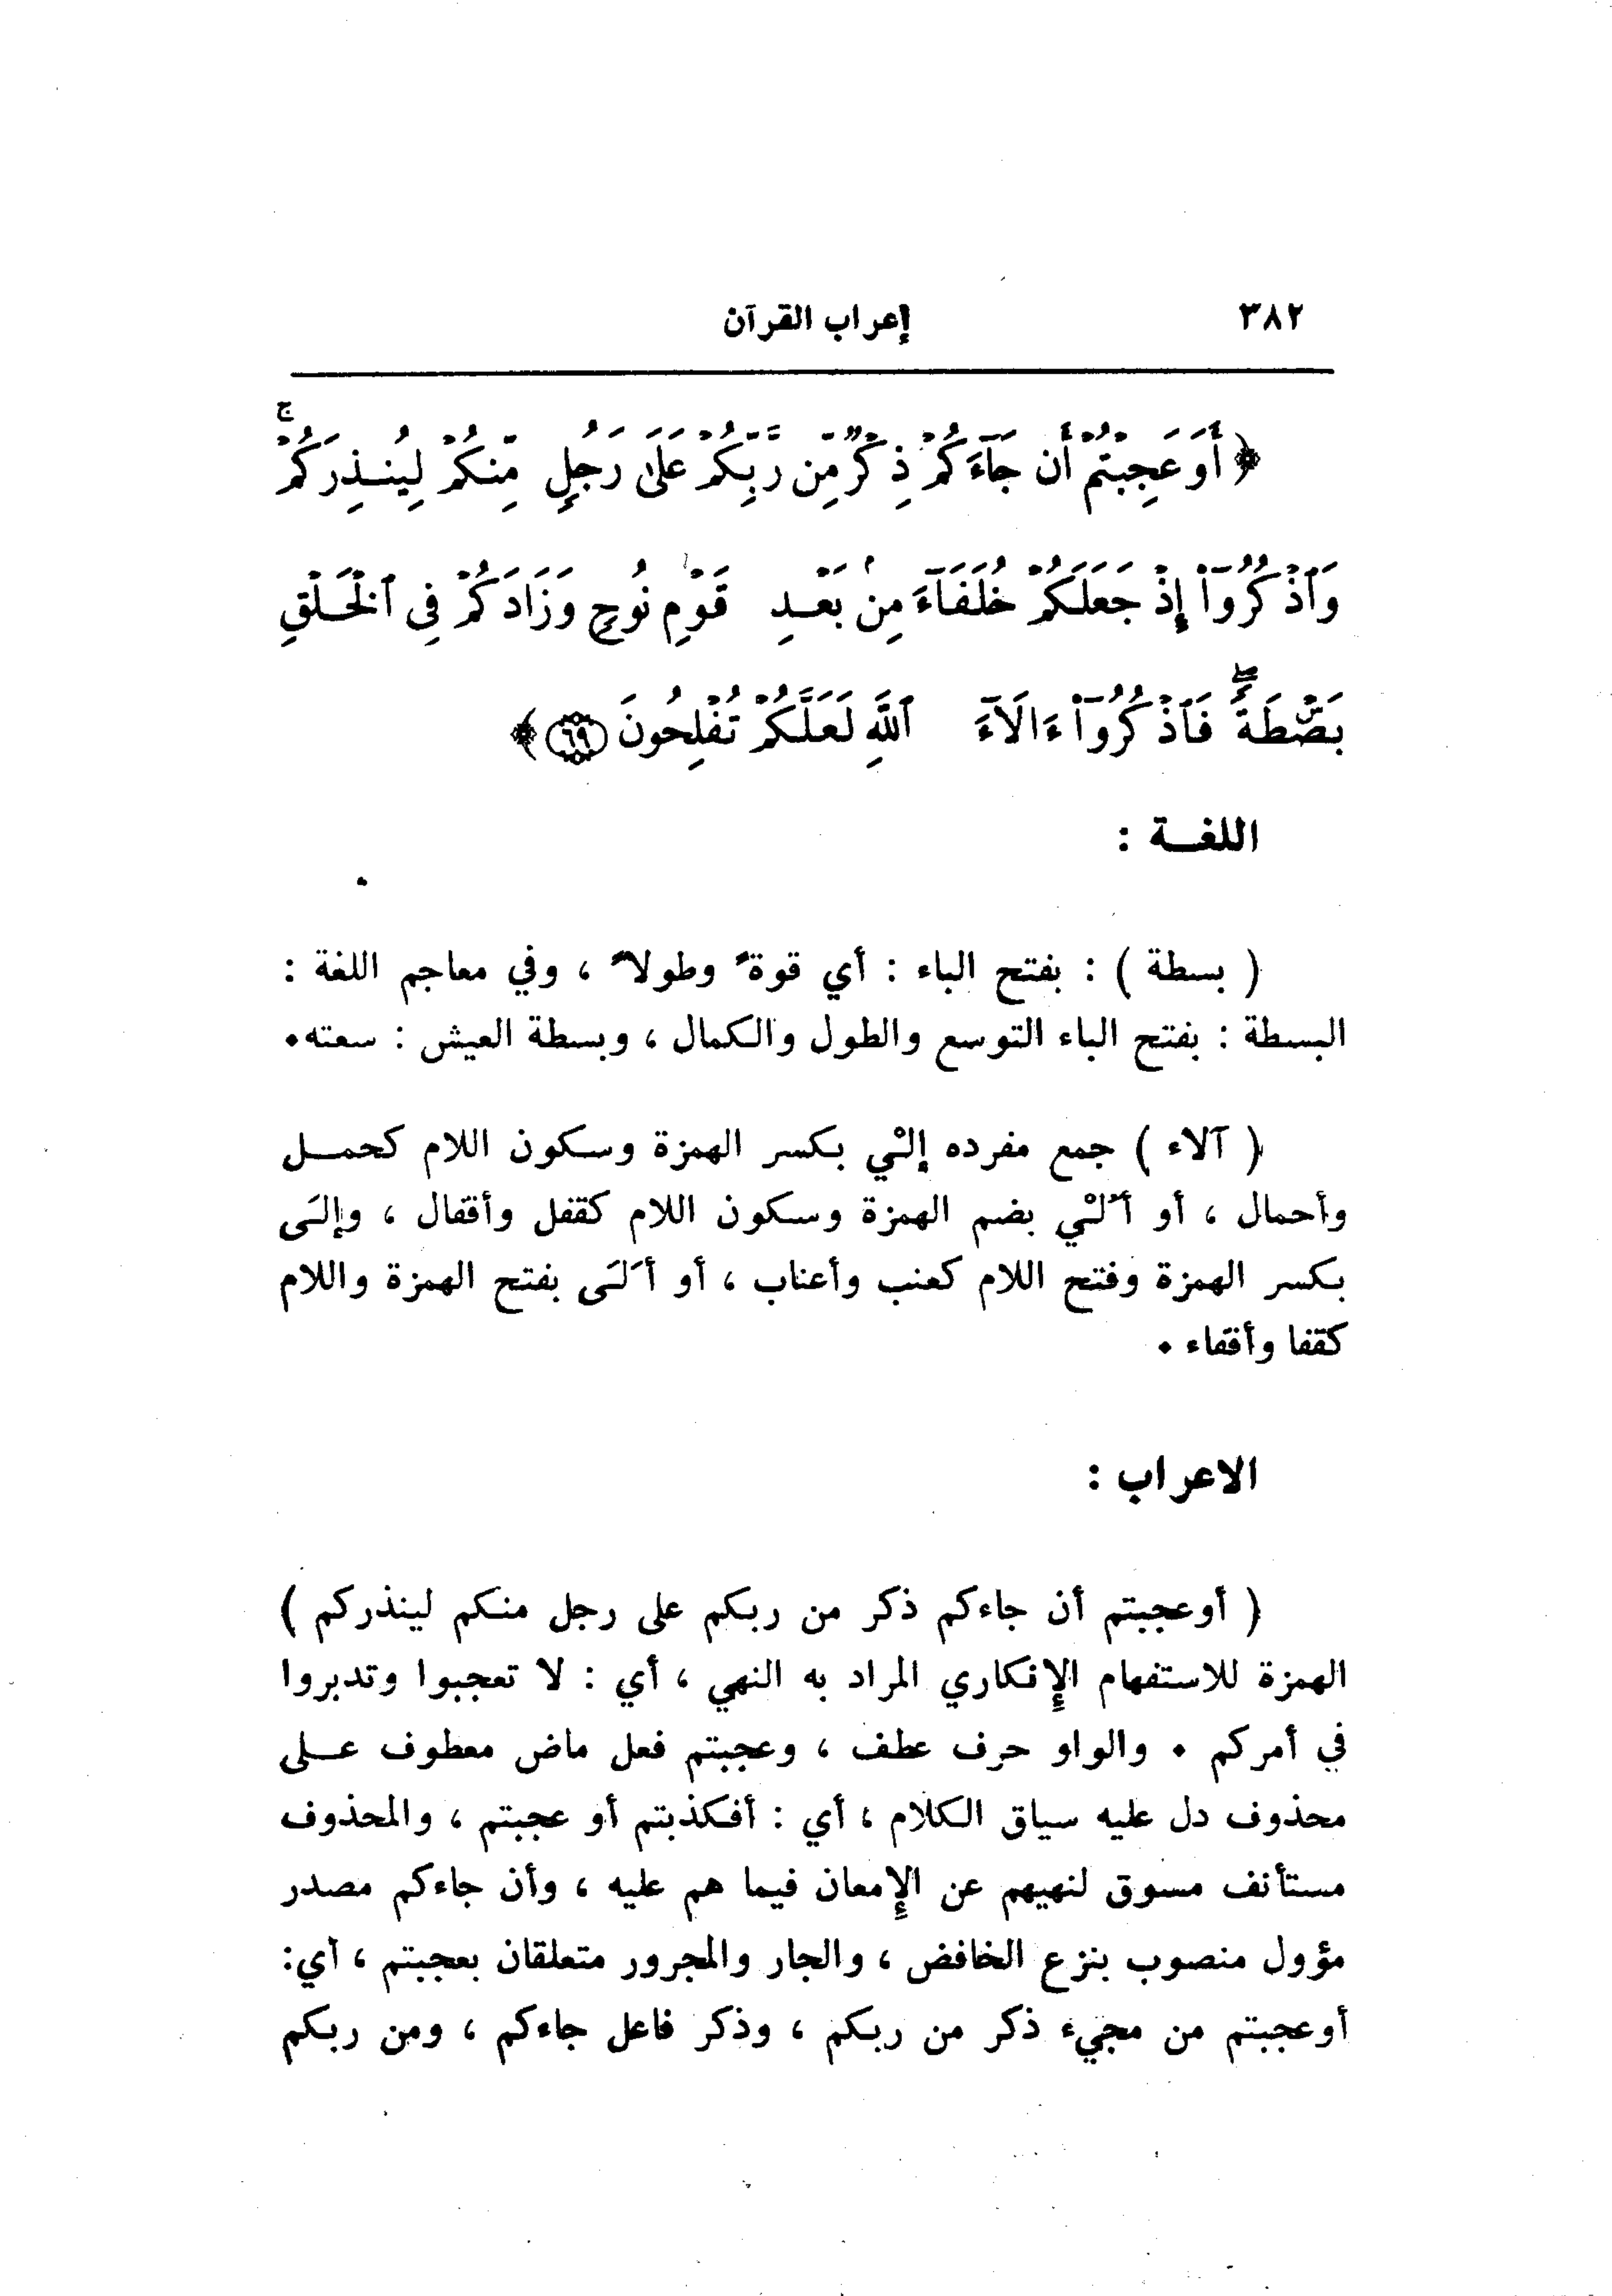 ٣٨٢ إعراب القرآن
﴿ أَوَعَجِبْتُمْ أَن جَآءَكُمْ ذِكْرٌ مِّن رَّبِّكُمْ عَلَىٰ رَجُلٍ مِّنكُمْ لِيُنذِرَكُمْ ۚ
وَٱذْكُرُوٓا۟ إِذْ جَعَلَكُمْ خُلَفَآءَ مِنۢ بَعْدِ قَوْمِ نُوحٍ وَزَادَكُمْ فِى ٱلْخَلْقِ
بَصْۜطَةً ۖ فَٱذْكُرُوٓا۟ ءَالَآءَ ٱللَّهِ لَعَلَّكُمْ تُفْلِحُونَ ٦٩ ﴾
اللغــة :
( بسطة ) : بفتح الباء : أي قوةً وطولاً ، وفي معاجم اللغة :
البسطة : بفتح الباء التوسع والطول والكمال ، وبسطة العيش : سعته.
( آلاء ) جمع مفرده إلْي بكسر الهمزة وسكون اللام كحمــل
وأحمال ، أو أُلْي بضم الهمزة وسكون اللام كقفل وأقفال ، وإلَى
بكسر الهمزة وفتح اللام كعنب وأعناب ، أو أَلَى بفتح الهمزة واللام
كقفا وأقفاء .
الاعراب :
( أوعجبتم أن جاءكم ذكر من ربكم على رجل منكم لينذركم )
الهمزة للاستفهام الإنكاري المراد به النهي ، أي : لا تعجبوا وتدبروا
في أمركم . والواو حرف عطف ، وعجبتم فعل ماض معطوف عــلى
محذوف دل عليه سياق الكلام ، أي : أفكذبتم أو عجبتم ، والمحذوف
مستأنف مسوق لنهيهم عن الإمعان فيما هم عليه ، وأن جاءكم مصدر
مؤول منصوب بنزع الخافض ، والجار والمجرور متعلقان بعجبتم ، أي:
أوعجبتم من مجيء ذكر من ربكم ، وذكر فاعل جاءكم ، ومن ربكم